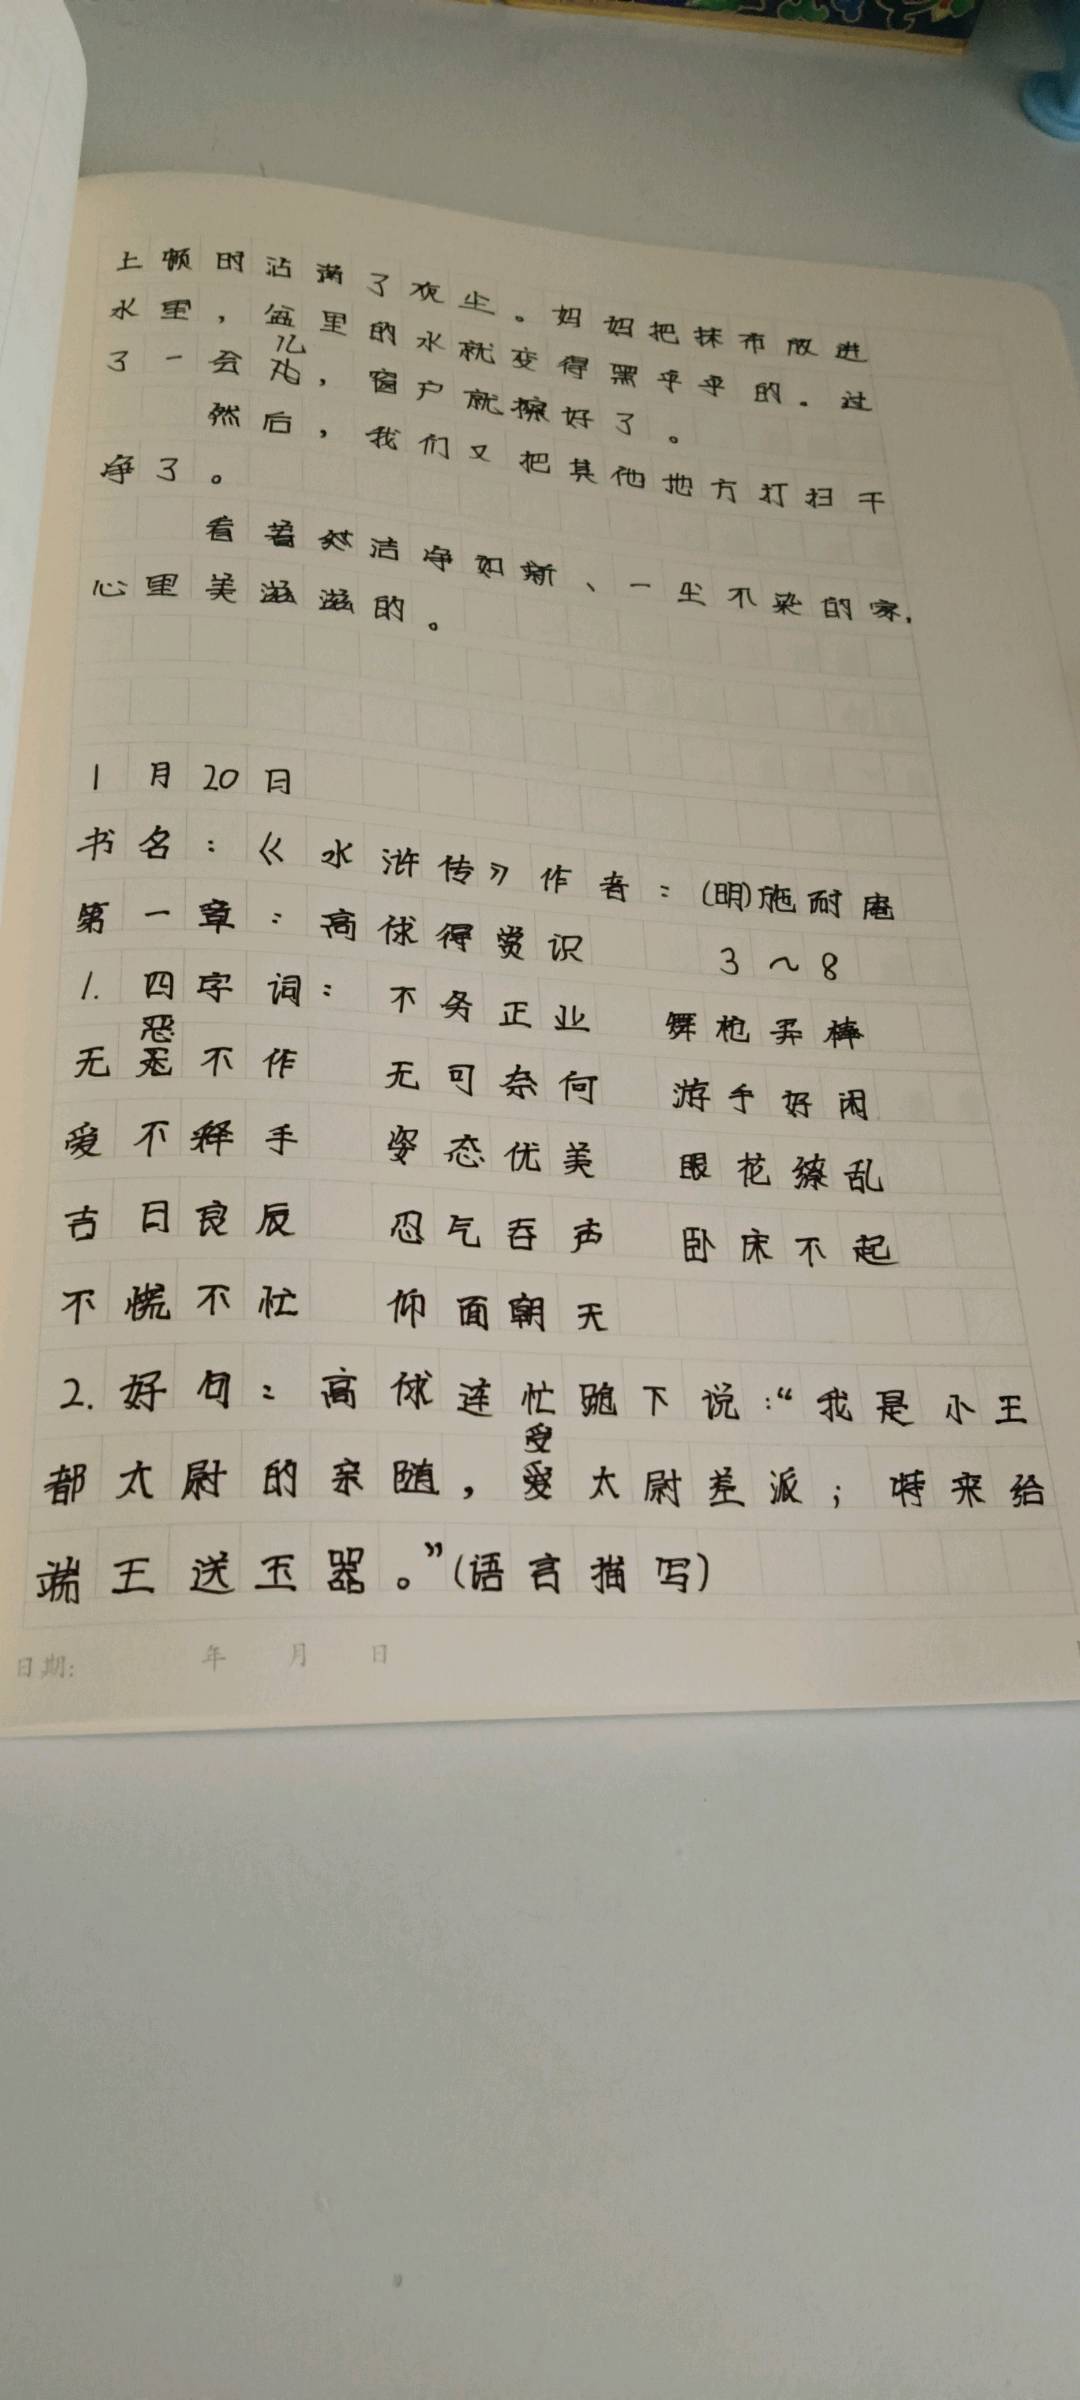 上顿时沾满了灰尘。妈妈把抹布放进
水里，盆里的水就变得黑乎乎的。过
了一会儿，窗户就擦好了。
然后，我们又把其他地方打扫干
净了。
看着洁净如新、一尘不染的家，
心里美滋滋的。
1月20日
书名：《水浒传》作者：(明)施耐庵
第一章：高俅得赏识 3～8
1. 四字词：不务正业 舞枪弄棒
无恶不作 无可奈何 游手好闲
爱不释手 姿态优美 眼花缭乱
吉日良辰 忍气吞声 卧床不起
不慌不忙 仰面朝天
2. 好句：高俅连忙跪下说：“我是小王
都太尉的亲随，受太尉差派；特来给
端王送玉器。”(语言描写)
日期: 年 月 日